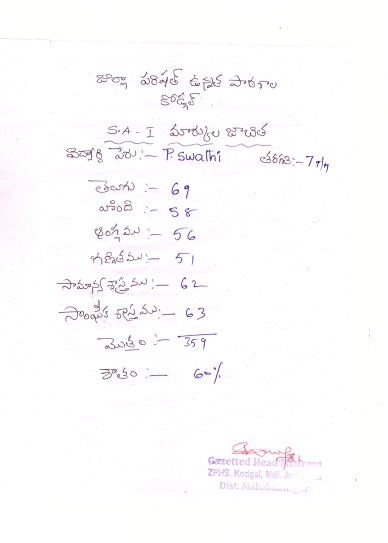 జిల్లా పరిషత్ ఉన్నత పాఠశాల
కోడ్గల్
S.A - I మార్కుల జాబిత
విద్యార్థి పేరు:- P. Swathi తరగతి:- 7 T/M
తెలుగు :- 69
హింది :- 58
ఇంగ్లీషు :- 56
గణితము :- 51
సామాన్య శాస్త్రము :- 62
సాంఘీక శాస్త్రము :- 63
మొత్తం :- 359
శాతం :- 60%
Gazetted Head Mistress
ZPHS. Kodgal, Mdl.
Dist. Mahabubnagar